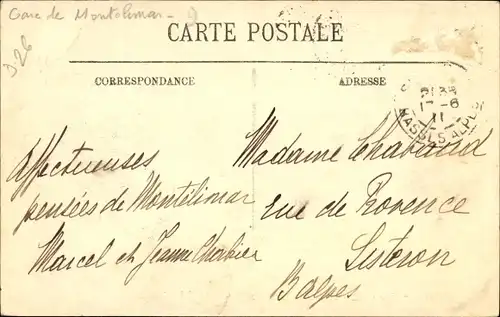 Gare de Montélimar - 9
D26
CARTE POSTALE
CORRESPONDANCE
ADRESSE
17-6
11
BASSES-ALPES
Affectueuses
pensées de Montélimar
Marcel et Jeanne
Madame Chabaud
rue de Provence
Sisteron
Balpes